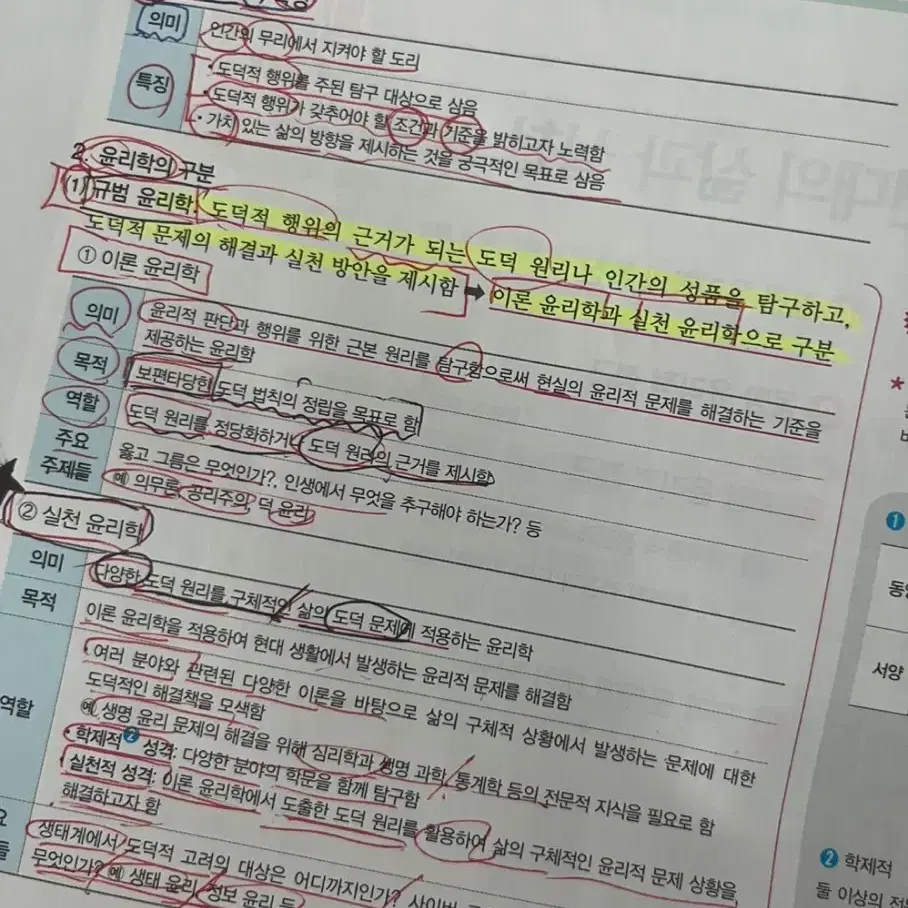 의미 인간의 무리에서 지켜야 할 도리
특징 • 도덕적 행위를 주된 탐구 대상으로 삼음
• 도덕적 행위가 갖추어야 할 조건과 기준을 밝히고자 노력함
• 가치 있는 삶의 방향을 제시하는 것을 궁극적인 목표로 삼음
2. 윤리학의 구분
(1) 규범 윤리학: 도덕적 행위의 근거가 되는 도덕 원리나 인간의 성품을 탐구하고,
도덕적 문제의 해결과 실천 방안을 제시함 ➡ 이론 윤리학과 실천 윤리학으로 구분
① 이론 윤리학
의미 윤리적 판단과 행위를 위한 근본 원리를 탐구함으로써 현실의 윤리적 문제를 해결하는 기준을
제공하는 윤리학
목적 보편타당한 도덕 법칙의 정립을 목표로 함
역할 도덕 원리를 정당화하거나 도덕 원리의 근거를 제시함
주요 옳고 그름은 무엇인가?, 인생에서 무엇을 추구해야 하는가? 등
주제들 예 의무론, 공리주의, 덕 윤리
② 실천 윤리학
의미 다양한 도덕 원리를 구체적인 삶의 도덕 문제에 적용하는 윤리학
목적 이론 윤리학을 적용하여 현대 생활에서 발생하는 윤리적 문제를 해결함
역할 • 여러 분야와 관련된 다양한 이론을 바탕으로 삶의 구체적 상황에서 발생하는 문제에 대한
도덕적인 해결책을 모색함
예 생명 윤리 문제의 해결을 위해 심리학과 생명 과학, 통계학 등의 전문적 지식을 필요로 함
• 학제적❷ 성격: 다양한 분야의 학문을 함께 탐구함
• 실천적 성격: 이론 윤리학에서 도출한 도덕 원리를 활용하여 삶의 구체적인 윤리적 문제 상황을
해결하고자 함
생태계에서 도덕적 고려의 대상은 어디까지인가?
무엇인가? 예 생태 윤리, 정보 윤리 등
❶
서양
❷ 학제적
둘 이상의